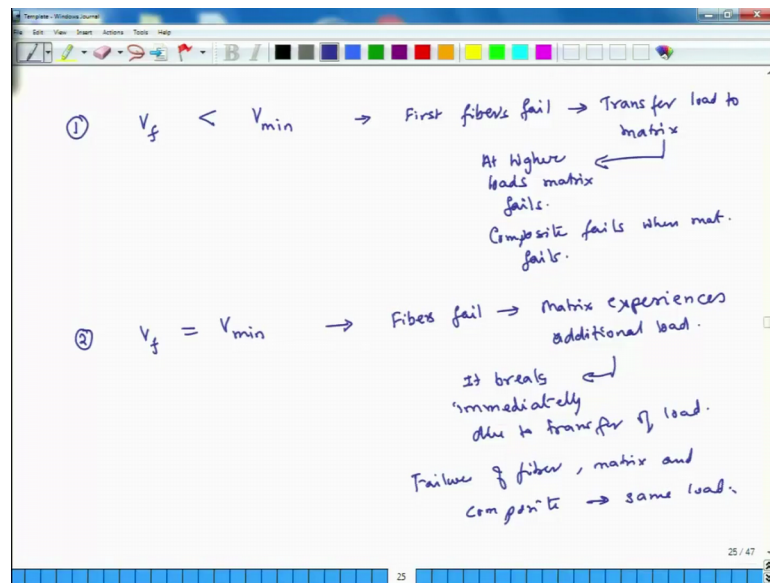 Template - Windows Journal
File Edit View Insert Actions Tools Help
B I
① V_f < V_min → First fibers fail → Transfer load to
matrix
At higher
loads matrix
fails.
Composite fails when mat.
fails.
② V_f = V_min → Fiber fail → Matrix experiences
additional load.
It breaks
immediately
due to transfer of load.
Failure of fiber, matrix and
composite → same load.
25 / 47
25